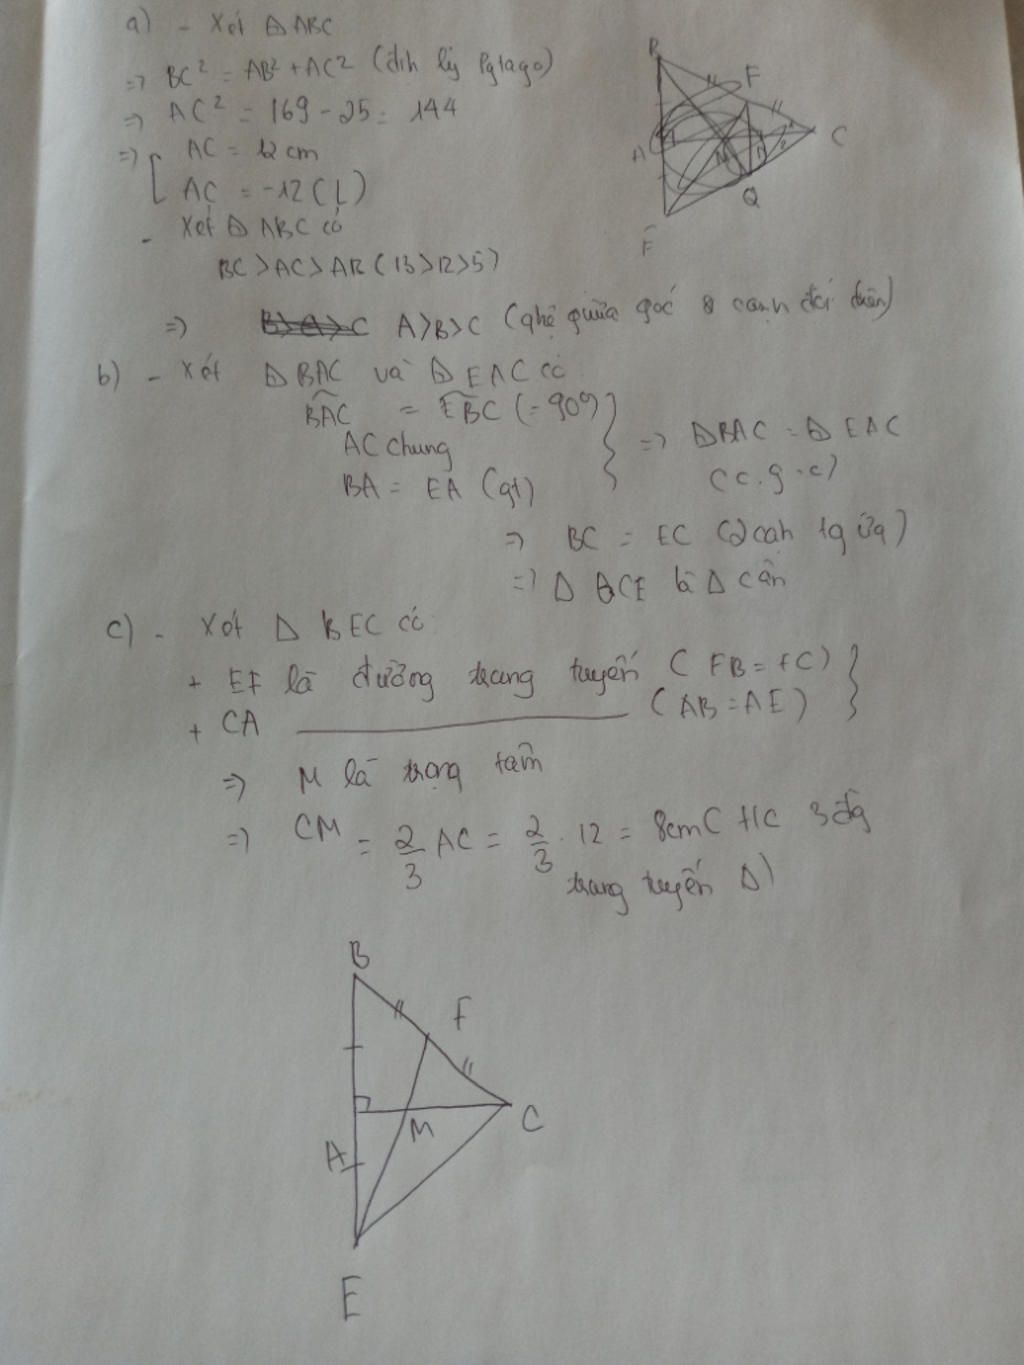 a) - Xét Δ ABC
=> BC² = AB² + AC² (định lý Pytago)
=> AC² = 169 - 25 = 144
=> [ AC = 12 cm
AC = -12 (L)
- Xét Δ ABC có
BC > AC > AB (13 > 12 > 5)
=> A > B > C (qhệ giữa góc & cạnh đối diện)
b) - Xét Δ BAC và Δ EAC có
BAC = EBC (= 90°)
AC chung
BA = EA (gt)
=> Δ BAC = Δ EAC
(c.g.c)
=> BC = EC (2 cạh tg ứg)
=> Δ BCE là Δ cân
c) - Xét Δ BEC có:
+ EF là đường trung tuyến (FB = FC)
+ CA ———— (AB = AE)
=> M là trọng tâm
=> CM = 2/3 AC = 2/3 . 12 = 8cm ( t/c 3 đg
trung tuyến Δ)
B
F
A
M
C
Q
E
B
F
A
M
C
E